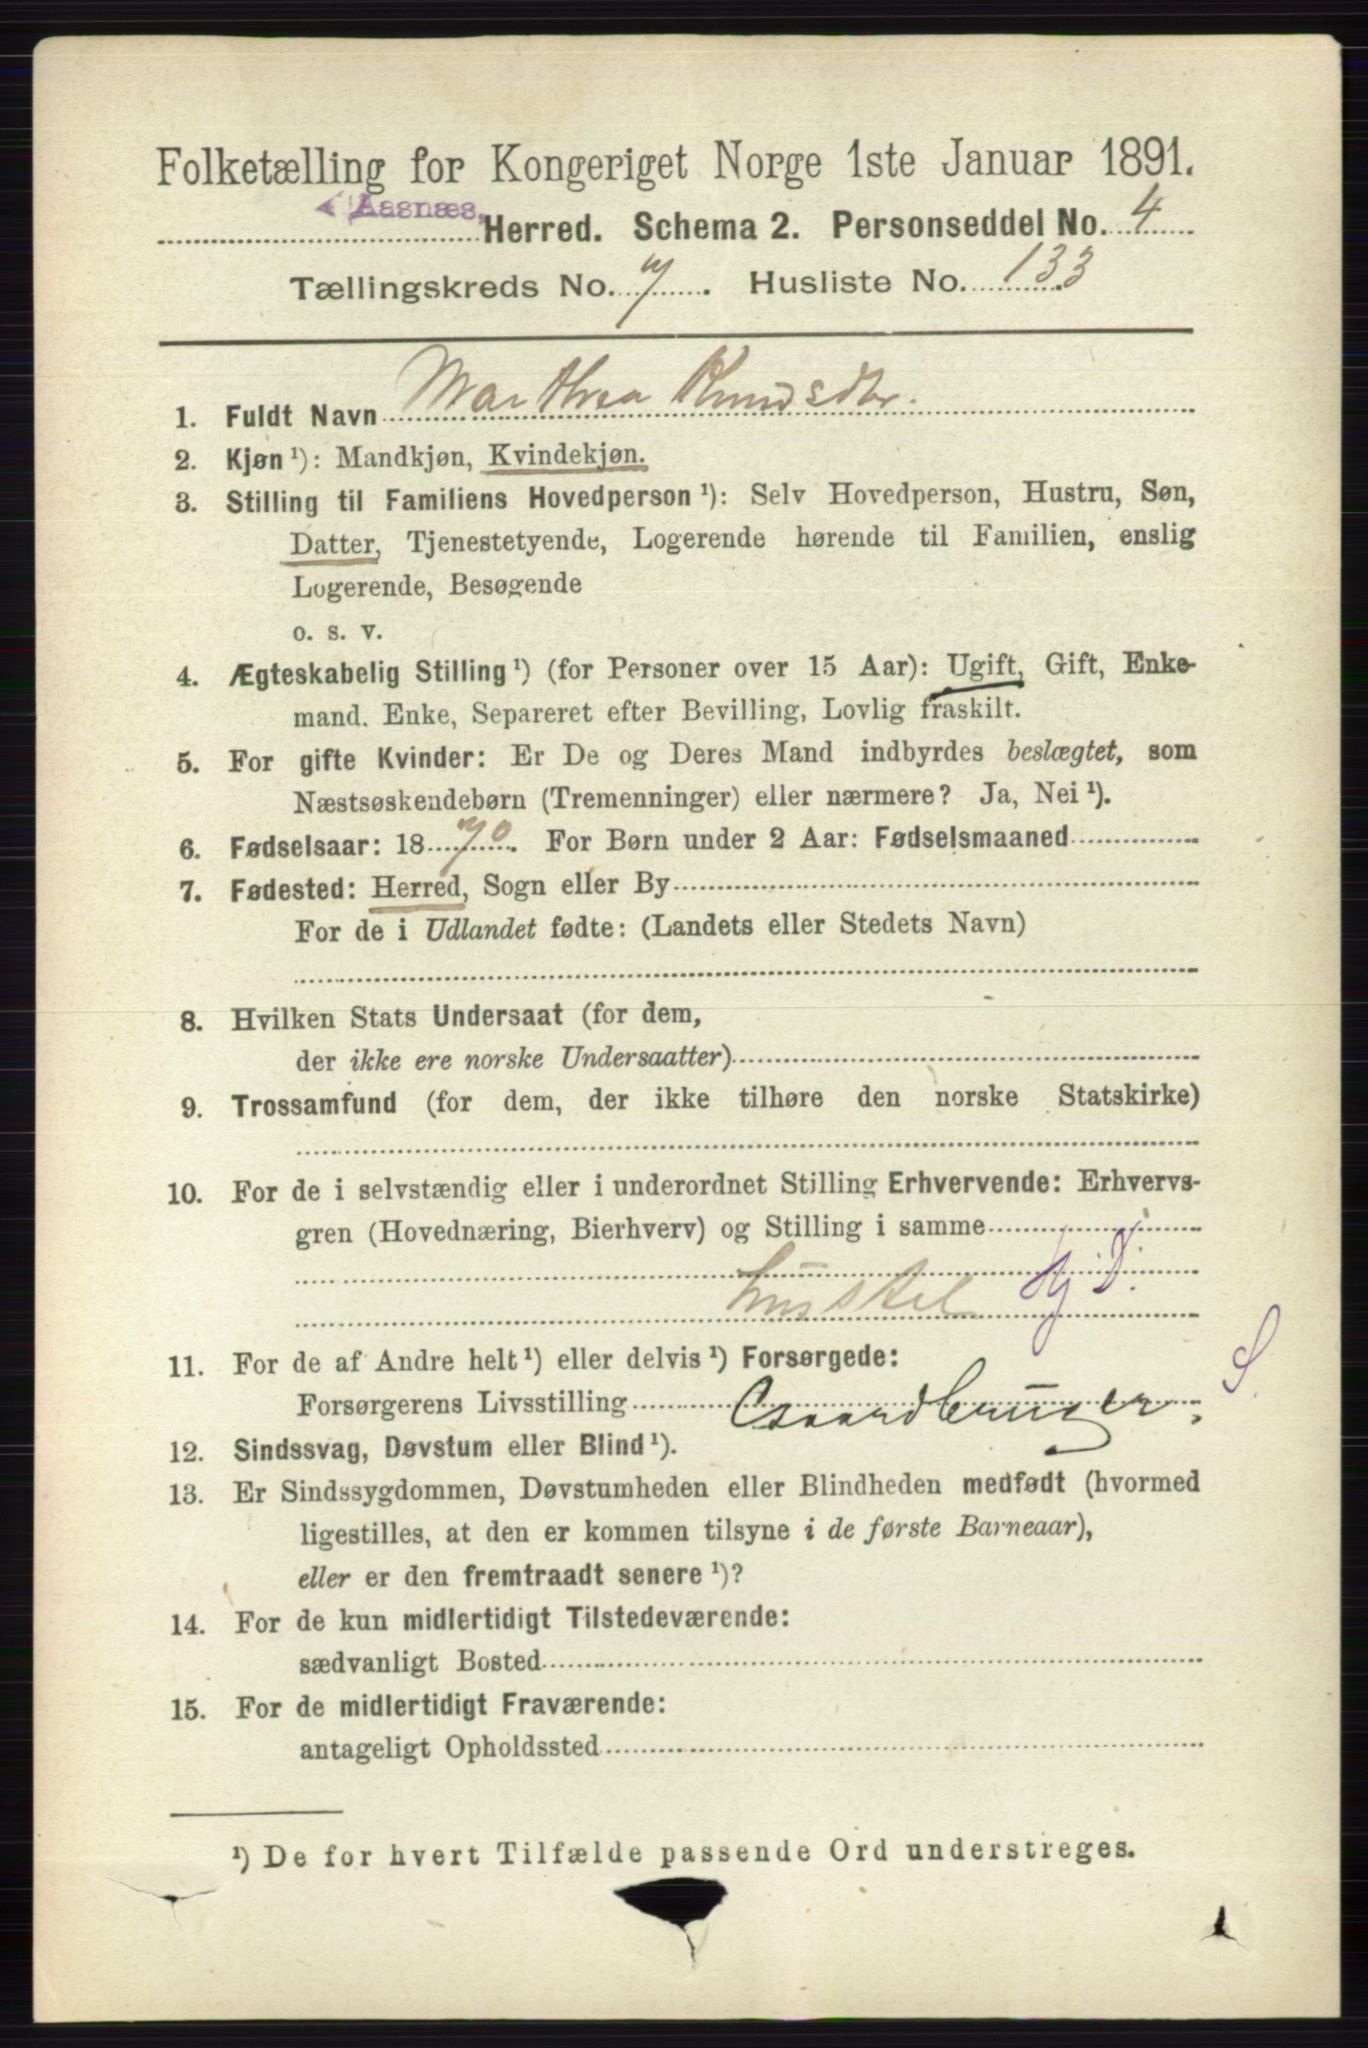 Folketælling for Kongeriget Norge 1ste Januar 1891.
Aasnæs, Herred. Schema 2. Personseddel No. 4
Tællingskreds No. 7. Husliste No. 133
1. Fuldt Navn Marthea Knudsdtr.
2. Kjøn ¹): Mandkjøn, Kvindekjøn.
3. Stilling til Familiens Hovedperson ¹): Selv Hovedperson, Hustru, Søn,
Datter, Tjenestetyende, Logerende hørende til Familien, enslig
Logerende, Besøgende
o. s. v.
4. Ægteskabelig Stilling ¹) (for Personer over 15 Aar): Ugift, Gift, Enke-
mand. Enke, Separeret efter Bevilling, Lovlig fraskilt.
5. For gifte Kvinder: Er De og Deres Mand indbyrdes beslægtet, som
Næstsøskendebørn (Tremenninger) eller nærmere? Ja, Nei ¹).
6. Fødselsaar: 1870. For Børn under 2 Aar: Fødselsmaaned
7. Fødested: Herred, Sogn eller By
For de i Udlandet fødte: (Landets eller Stedets Navn)
8. Hvilken Stats Undersaat (for dem,
der ikke ere norske Undersaatter)
9. Trossamfund (for dem, der ikke tilhøre den norske Statskirke)
10. For de i selvstændig eller i underordnet Stilling Erhvervende: Erhvervs-
gren (Hovednæring, Bierhverv) og Stilling i samme
husstel Hj D.
11. For de af Andre helt ¹) eller delvis ¹) Forsørgede:
Forsørgerens Livsstilling Gaardbruger. S.
12. Sindssvag, Døvstum eller Blind ¹).
13. Er Sindssygdommen, Døvstumheden eller Blindheden medfødt (hvormed
ligestilles, at den er kommen tilsyne i de første Barneaar),
eller er den fremtraadt senere ¹)?
14. For de kun midlertidigt Tilstedeværende:
sædvanligt Bosted
15. For de midlertidigt Fraværende:
antageligt Opholdssted
¹) De for hvert Tilfælde passende Ord understreges.